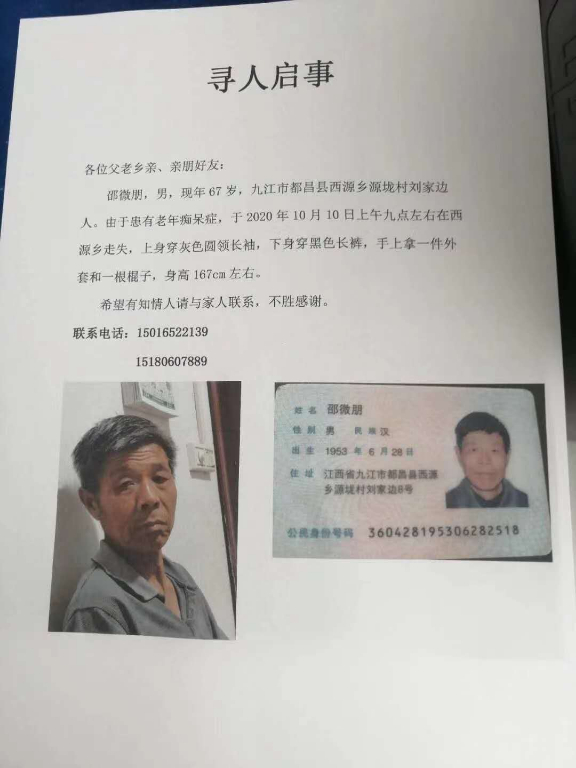 寻人启事
各位父老乡亲、亲朋好友：
邵微朋，男，现年67岁，九江市都昌县西源乡源垅村刘家边
人。由于患有老年痴呆症，于2020年10月10日上午九点左右在西
源乡走失，上身穿灰色圆领长袖，下身穿黑色长裤，手上拿一件外
套和一根棍子，身高167cm左右。
希望有知情人请与家人联系，不胜感谢。
联系电话：15016522139
15180607889
姓名 邵微朋
性别 男 民族 汉
出生 1953 年 6 月 28 日
住址 江西省九江市都昌县西源
乡源垅村刘家边8号
公民身份号码 360428195306282518